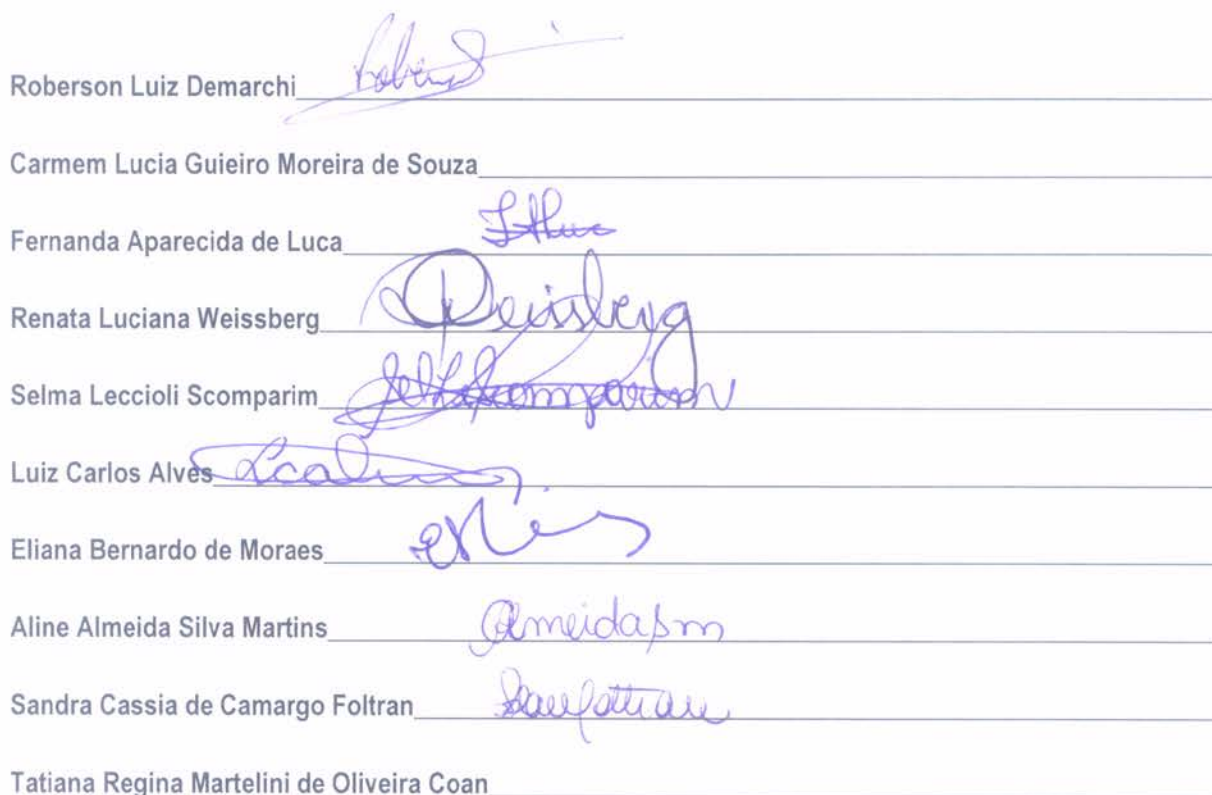 Roberson Luiz Demarchi
Carmem Lucia Guieiro Moreira de Souza
Fernanda Aparecida de Luca
Renata Luciana Weissberg Weissberg
Selma Leccioli Scomparim Scomparim
Luiz Carlos Alves
Eliana Bernardo de Moraes
Aline Almeida Silva Martins Almeidasm
Sandra Cassia de Camargo Foltran
Tatiana Regina Martelini de Oliveira Coan